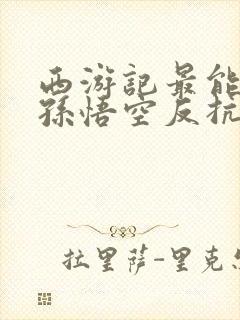 西游記最能
孫悟空反抗
拉里薩-里克